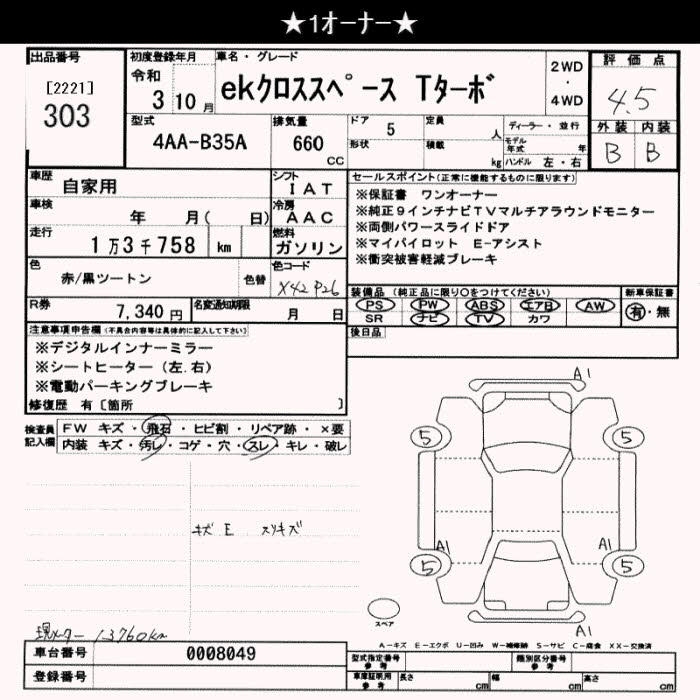 ★1オーナー★
出品番号
[2221]
303
初度登録年月
令和
3年10月
車名・グレード
ekクロススペース Tターボ
2WD
・
4WD
評価点
4.5
外装 内装
B B
型式
4AA-B35A
排気量
660
CC
ドア 5
形状
定員 人
積載 kg
ディーラー・並行
モデル年式 年
ハンドル 左・右
車歴
自家用
シフト
IAT
車検
年 月( 日)
冷房
AAC
走行
1万3千758 km
燃料
ガソリン
色
赤/黒ツートン
色替
色コード
X42 P26
R券
7,340 円
名変通知期限
月 日
セールスポイント(正常に機能するものに限ります)
※保証書 ワンオーナー
※純正9インチナビTVマルチアラウンドモニター
※両側パワースライドドア
※マイパイロット E-アシスト
※衝突被害軽減ブレーキ
装備品(純正品に限り○をつけてください)
PS PW ABS エアB AW
SR ナビ TV カワ
新車保証書
有・無
後日品
注意事項申告欄(不具合内容等は具体的に記入して下さい)
※デジタルインナーミラー
※シートヒーター(左.右)
※電動パーキングブレーキ
修復歴 有[箇所 ]
検査員
記入欄
FW キズ・飛石・ヒビ割・リペア跡・×要
内装 キズ・汚レ・コゲ・穴・スレ・キレ・破レ
キズ E スリキズ
現メーター 13760km
A1
5
5
A1
5
A1
5
A1
スペア
A-キズ E-エクボ U-凹み W-補修跡 S-サビ C-腐食 XX-交換済
車台番号
0008049
登録番号
型式指定番号
参考
類別区分番号
参考
車庫証明用
参考
長さ cm
幅 cm
高さ cm